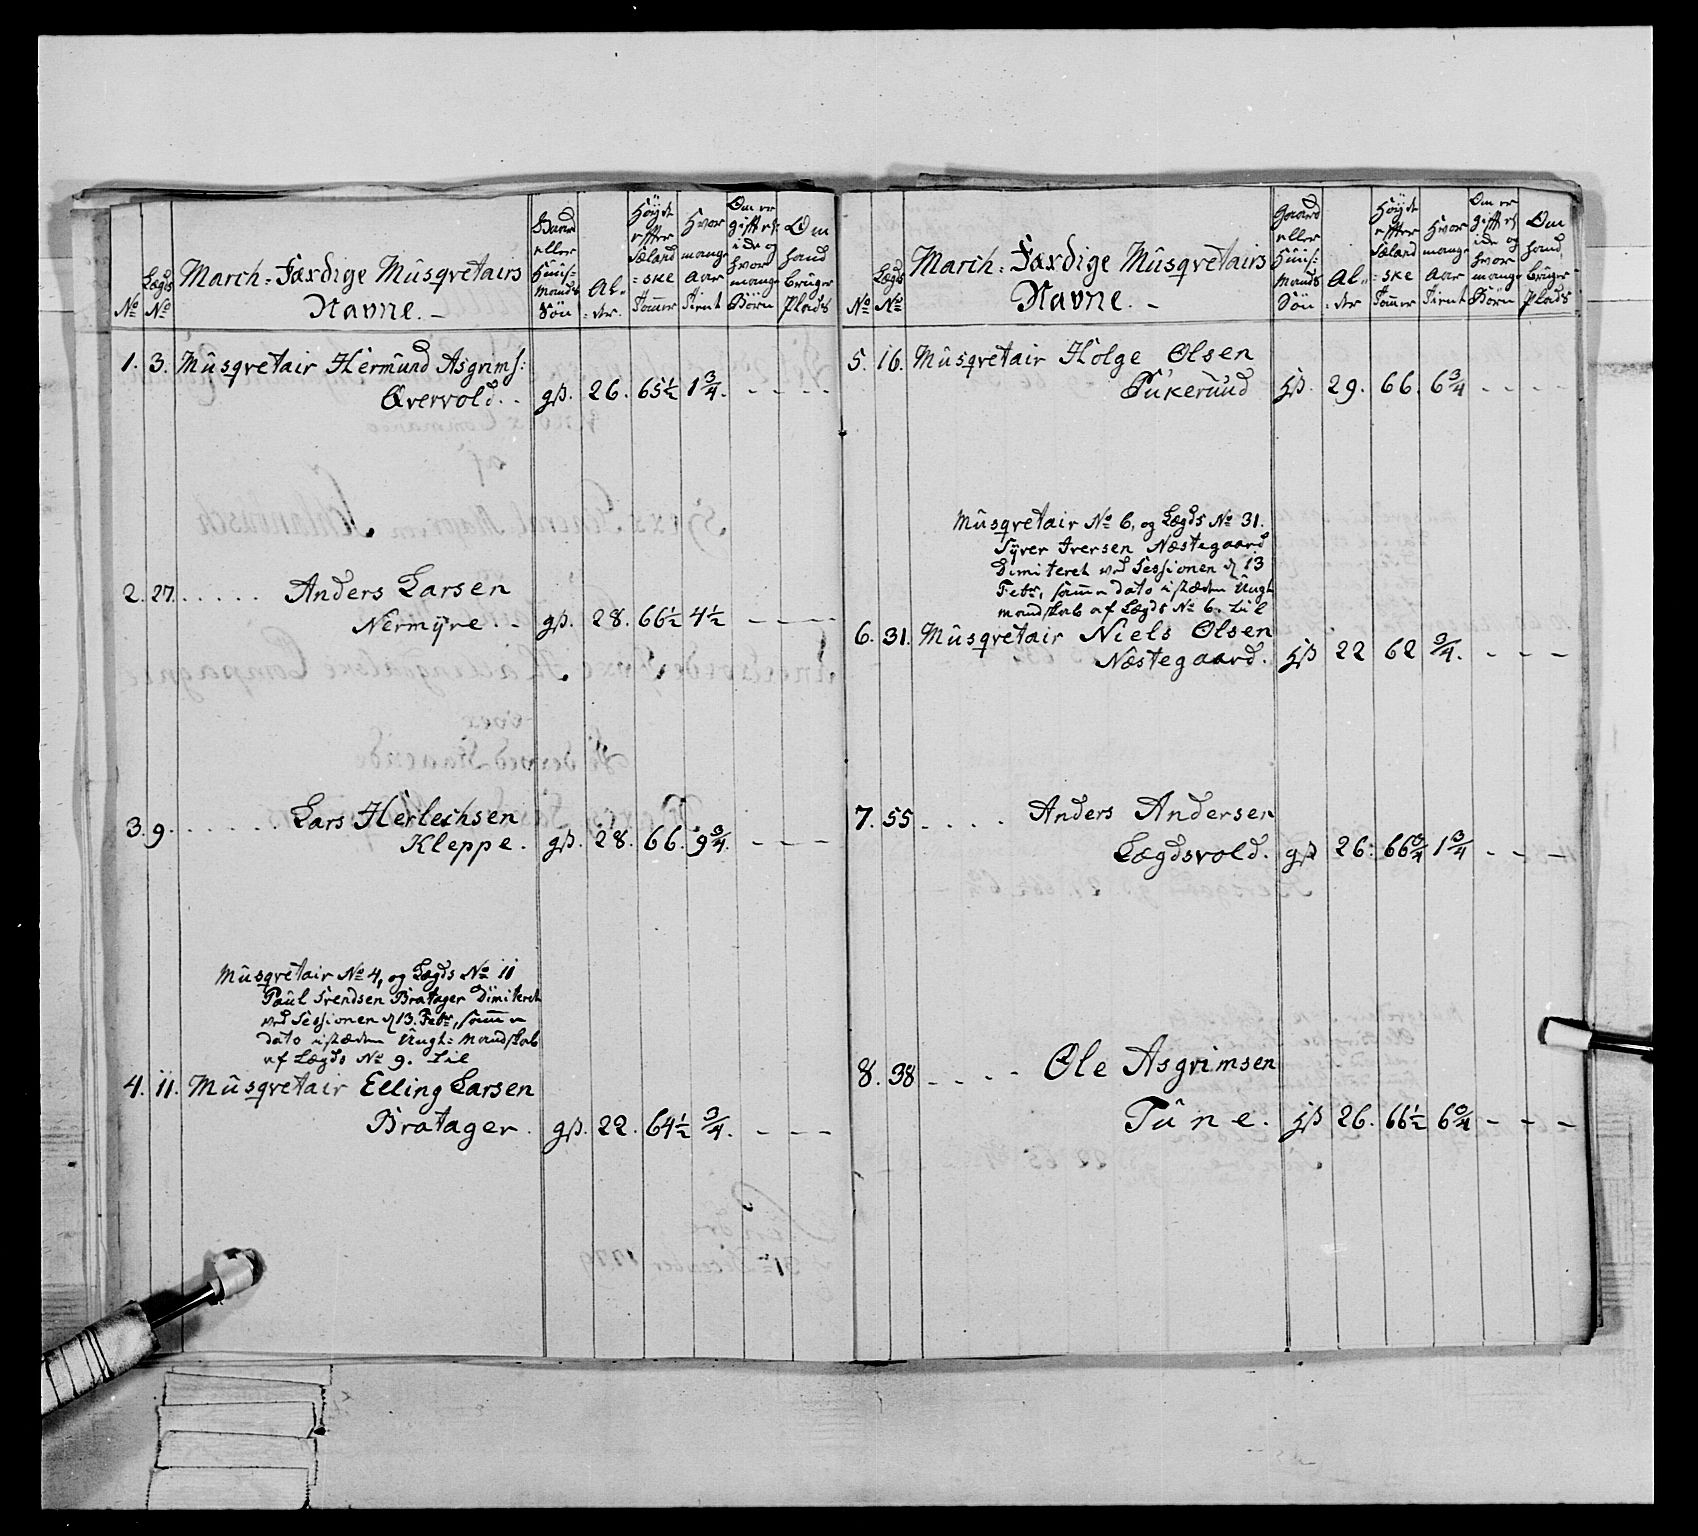 No
Lægds No
March-Færdige Musqretairs
Navne.
Gaard eller Huus-Mands Søn
Al-der.
Høyde effter Siæland-ske Tommer
Hvor mange Aar Tient
Om er gifft el: ide og hvor mange Børn
Om hand bruger Plads
1. 3. Musqretair Hermund Asgrims:
Øvervold. gß. 26. 65½ 1¾. - - - -
2. 27. . . . . . Anders Larsen
Nermÿre. gß. 28. 66½ 4½ - - -
3. 9. . . . . . Lars Herlechsen
Kleppe. gß. 28. 66. 9¾. - - -
Musqretair No 4, og Lægds No 11
Paul Svendsen Bratager Dimiteret
ved Sessionen d 13. Febr, samme
dato i stæden Ungt-Mandskab
af Lægds No 9. til
4. 11. Musqretair Elling Larsen
Bratager. gß. 22. 64½ ¾. - - -
No
Lægds No
March-Færdige Musqretairs
Navne.
Gaard eller Huus-Mands Søn
Al-der
Høyde effter Siæland-ske Tommer
Hvor mange Aar Tient
Om er gifft el: ide og hvor mange Børn
Om hand bruger Plads
5. 16. Musqretair Holge Olsen
Tukeruud hß. 29. 66. 6¾ - - - -
Musqretair No 6, og Lægds No 31.
Syver Iversen Næstegaard
Dimiteret ved Sessionen d 13
Febr, samme dato i stæden Ungt
mandskab af Lægds No 6. til
6. 31. Musqretair Niels Olsen
Næstegaard. hß 22 62 ¾. - - -
7. 55. . . . Anders Andersen
Lægdsvold. gß 26. 66¾ 1¾ - - -
8. 38 - - - - Ole Asgrimsen
Tune. hß 26. 66½ 6¾ - - -